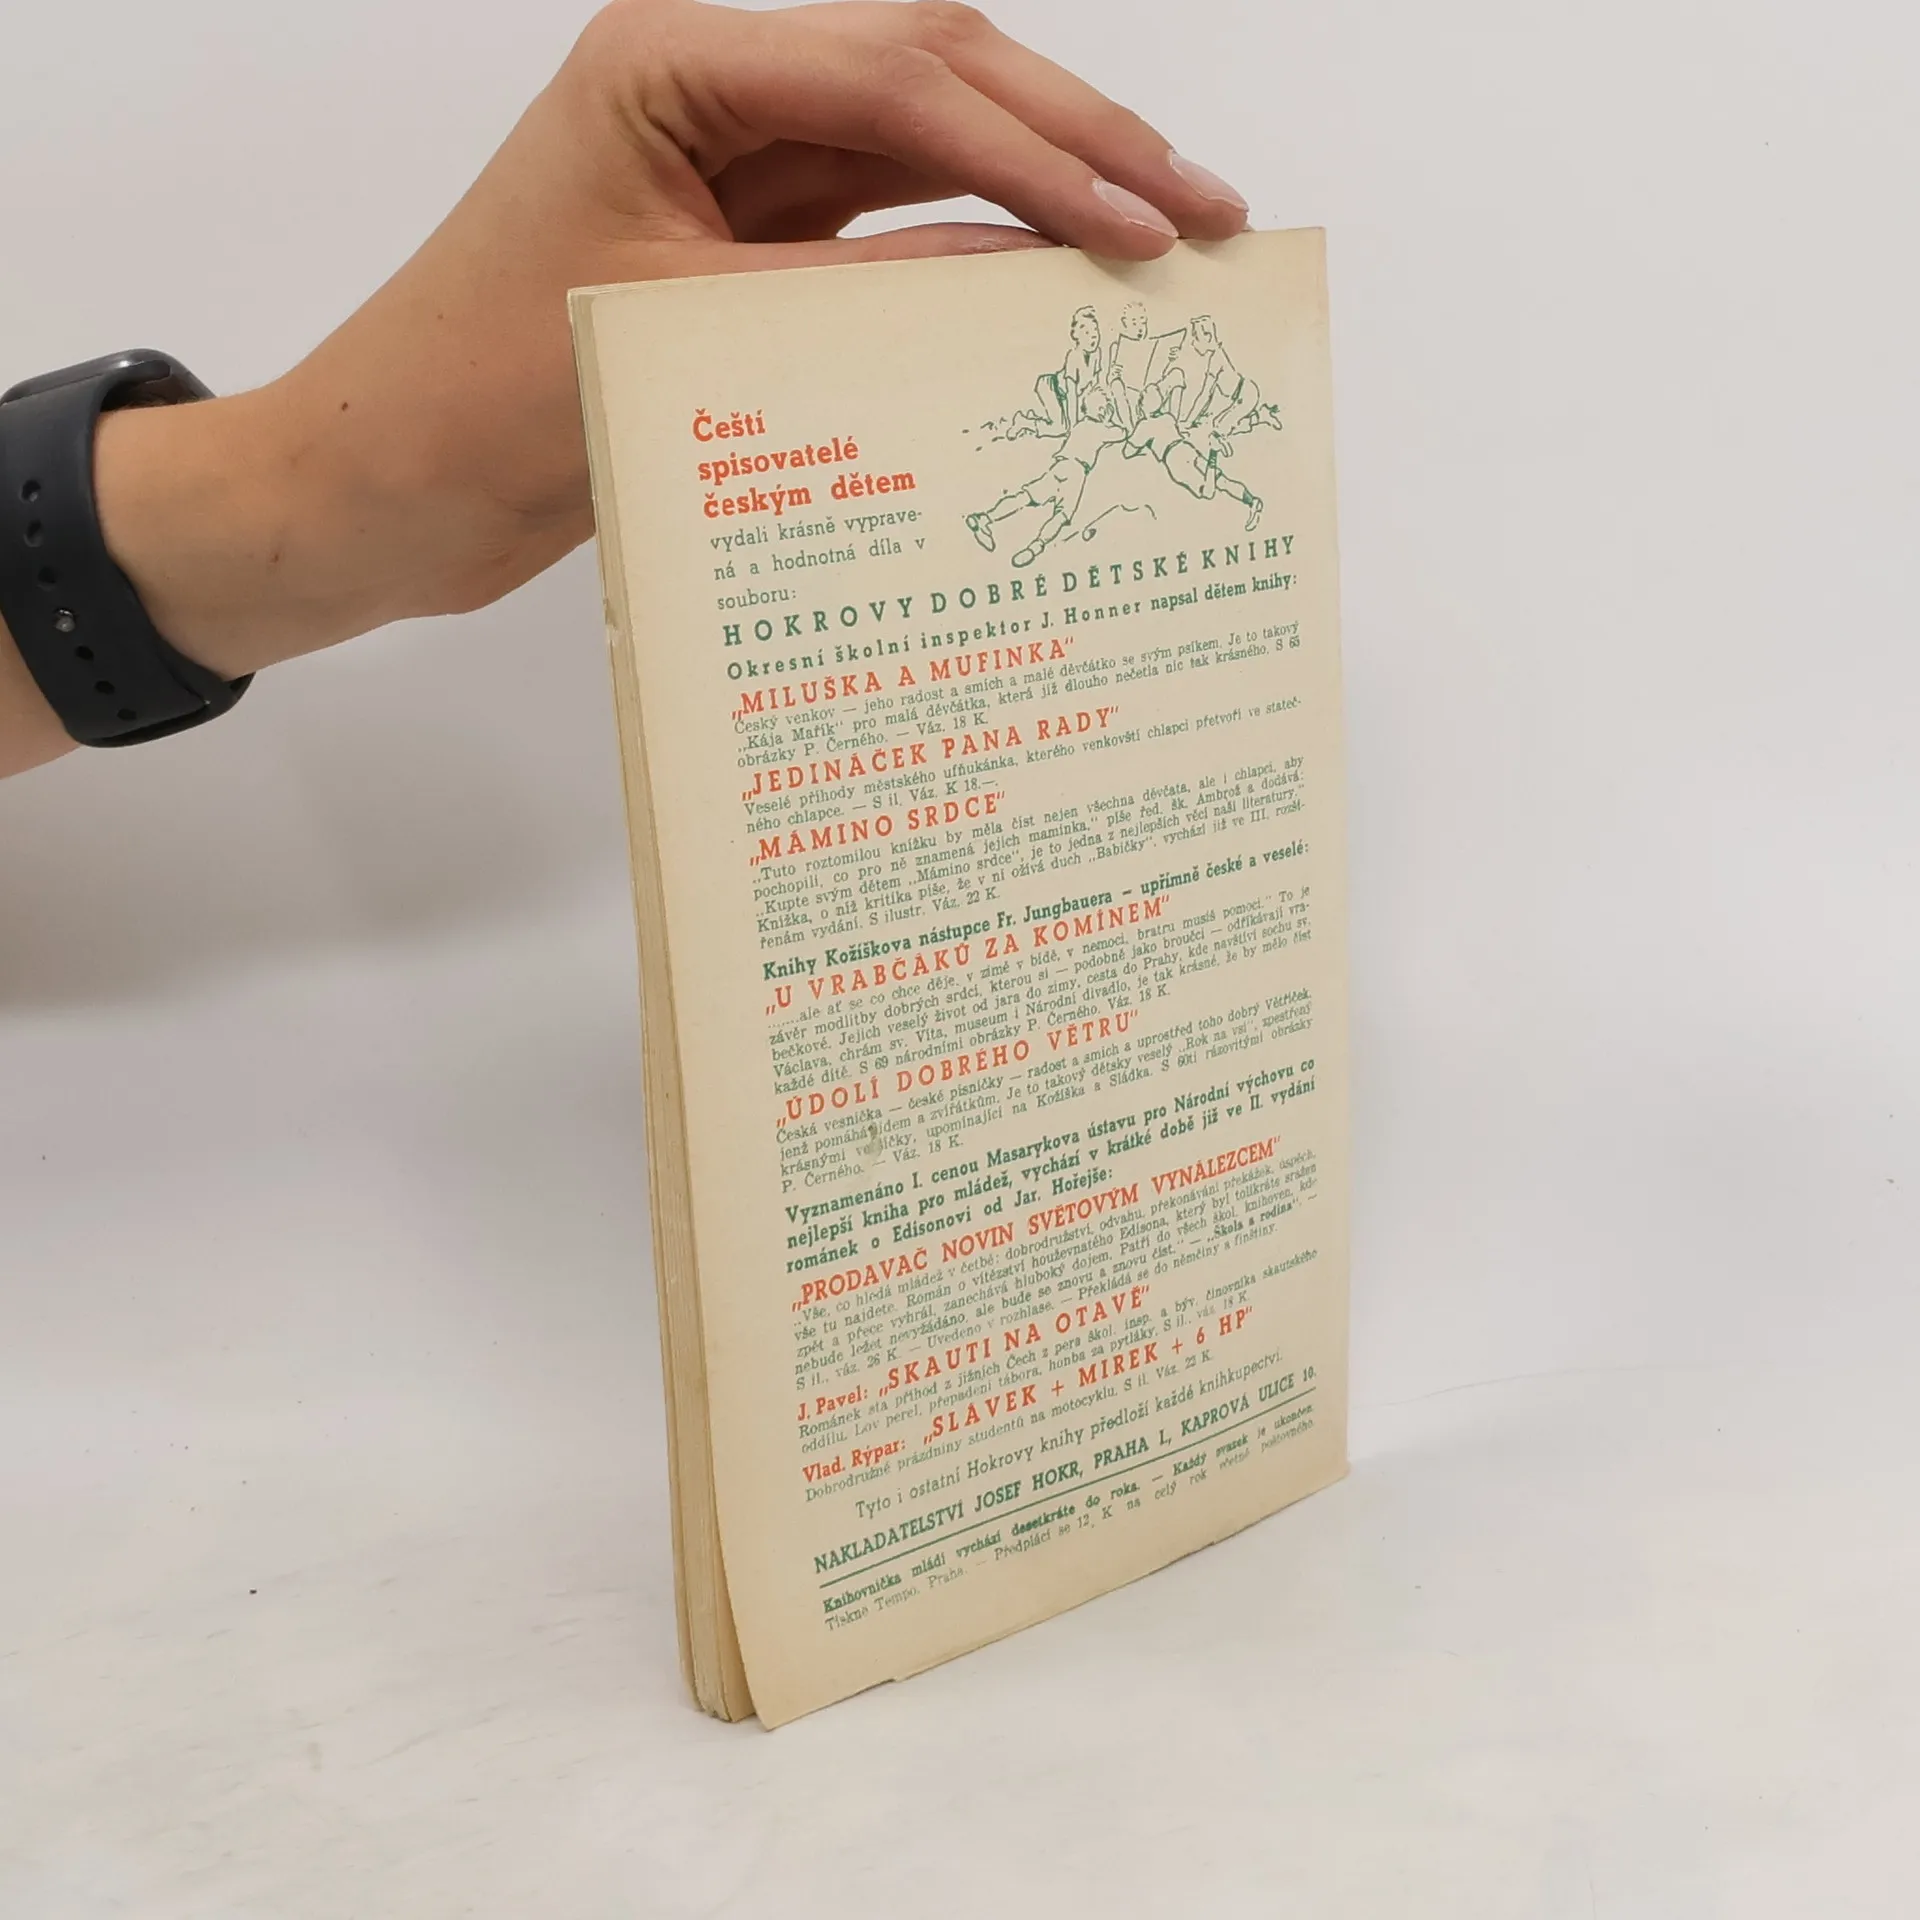 Čeští
spisovatelé
českým dětem
vydali krásně vyprave-
ná a hodnotná díla v
souboru:
HOKROVY DOBRÉ DĚTSKÉ KNIHY
Okresní školní inspektor J. Honner napsal dětem knihy:
„MILUŠKA A MUFINKA“
Český venkov — jeho radost a smích a malé děvčátko se svým psíkem. Je to takový
„Kája Mařík“ pro malá děvčátka, která již dlouho nečetla nic tak krásného. S 65
obrázky P. Černého. — Váz. 18 K.
„JEDINÁČEK PANA RADY“
Veselé příhody městského ufňukánka, kterého venkovští chlapci přetvoří ve stateč-
ného chlapce. — S il. Váz. K 18.—.
„MÁMINO SRDCE“
„Tuto roztomilou knížku by měla číst nejen všechna děvčata, ale i chlapci, aby
pochopili, co pro ně znamená jejich maminka,“ píše řed. šk. Ambrož a dodává:
„Kupte svým dětem „Mámino srdce“, je to jedna z nejlepších věcí naší literatury.“
Knížka, o níž kritika píše, že v ní ožívá duch „Babičky“, vychází již ve III. rozší-
řeném vydání. S ilustr. Váz. 22 K.
Knihy Kožíškova nástupce Fr. Jungbauera — upřímně české a veselé:
„U VRABČÁKŮ ZA KOMÍNEM“
.......ale ať se co chce děje, v zimě v bídě, v nemoci, bratru musíš pomoci.“ To je
závěr modlitby dobrých srdcí, kterou si — podobně jako broučci — odříkávají vra-
bečkové. Jejich veselý život od jara do zimy, cesta do Prahy, kde navštíví sochu sv.
Václava, chrám sv. Víta, museum i Národní divadlo, je tak krásné, že by mělo číst
každé dítě. S 69 národními obrázky P. Černého. Váz. 18 K.
„ÚDOLÍ DOBRÉHO VĚTRU“
Česká vesnička — české písničky — radost a smích a uprostřed toho dobrý Větříček,
jenž pomáhá lidem a zvířátkům. Je to takový dětsky veselý „Rok na vsi“, zpestřený
krásnými veršíčky, upomínající na Kožíška a Sládka. S 60ti rázovitými obrázky
P. Černého. — Váz. 18 K.
Vyznamenáno I. cenou Masarykova ústavu pro Národní výchovu co
nejlepší kniha pro mládež, vychází v krátké době již ve II. vydání
románek o Edisonovi od Jar. Hořejše:
„PRODAVAČ NOVIN SVĚTOVÝM VYNÁLEZCEM“
„Vše, co hledá mládež v četbě: dobrodružství, odvahu, překonávání překážek, úspěch,
vše tu najdete. Román o vítězství houževnatého Edisona, který byl tolikráte sražen
zpět a přece vyhrál, zanechává hluboký dojem. Patří do všech škol. knihoven, kde
nebude ležet nevyžádáno, ale bude se znovu a znovu číst.“ — „Škola a rodina“. —
S il., váz. 26 K. — Uvedeno v rozhlase. — Překládá se do němčiny a finštiny.
J. Pavel: „SKAUTI NA OTAVĚ“
Románek sta příhod z jižních Čech z pera škol. insp. a býv. činovníka skautského
oddílu. Lov perel, přepadení tábora, honba za pytláky. S il., váz. 18 K.
Vlad. Rýpar: „SLÁVEK + MIREK + 6 HP“
Dobrodružné prázdniny studentů na motocyklu. S il. Váz. 22 K.
Tyto i ostatní Hokrovy knihy předloží každé knihkupectví.
NAKLADATELSTVÍ JOSEF HOKR, PRAHA I., KAPROVÁ ULICE 10.
Knihovnička mládí vychází desetkráte do roka. — Každý svazek je ukončen.
Tiskne Tempo, Praha. — Předplácí se 12. K na celý rok včetně poštovného